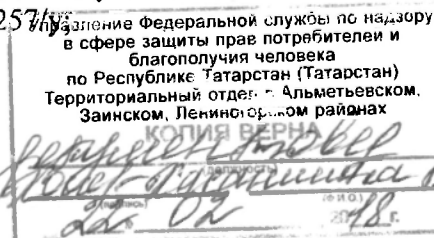 257/у;
Управление Федеральной службы по надзору
в сфере защиты прав потребителей и
благополучия человека
по Республике Татарстан (Татарстан)
Территориальный отдел в Альметьевском,
Заинском, Лениногорском районах
КОПИЯ ВЕРНА
(должность)
(подпись) (ф.и.о.)
22 02 2018 г.